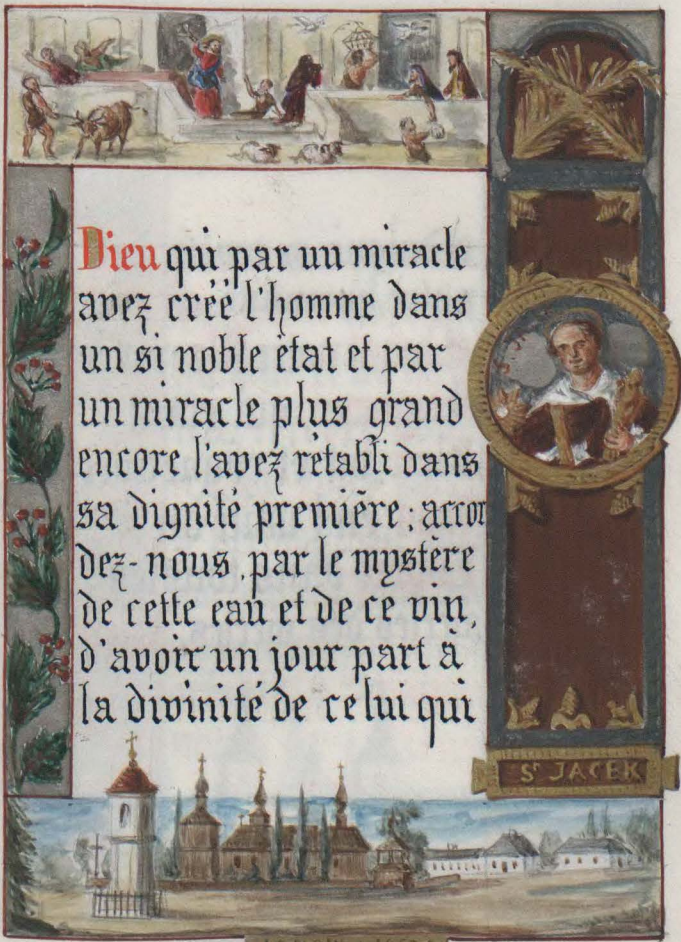 Dieu qui par un miracle
avez créé l'homme dans
un si noble état et par
un miracle plus grand
encore l'avez rétabli dans
sa dignité première; accor
dez-nous, par le mystère
de cette eau et de ce vin,
d'avoir un jour part à
la divinité de celui qui
Sᵗ JACEK